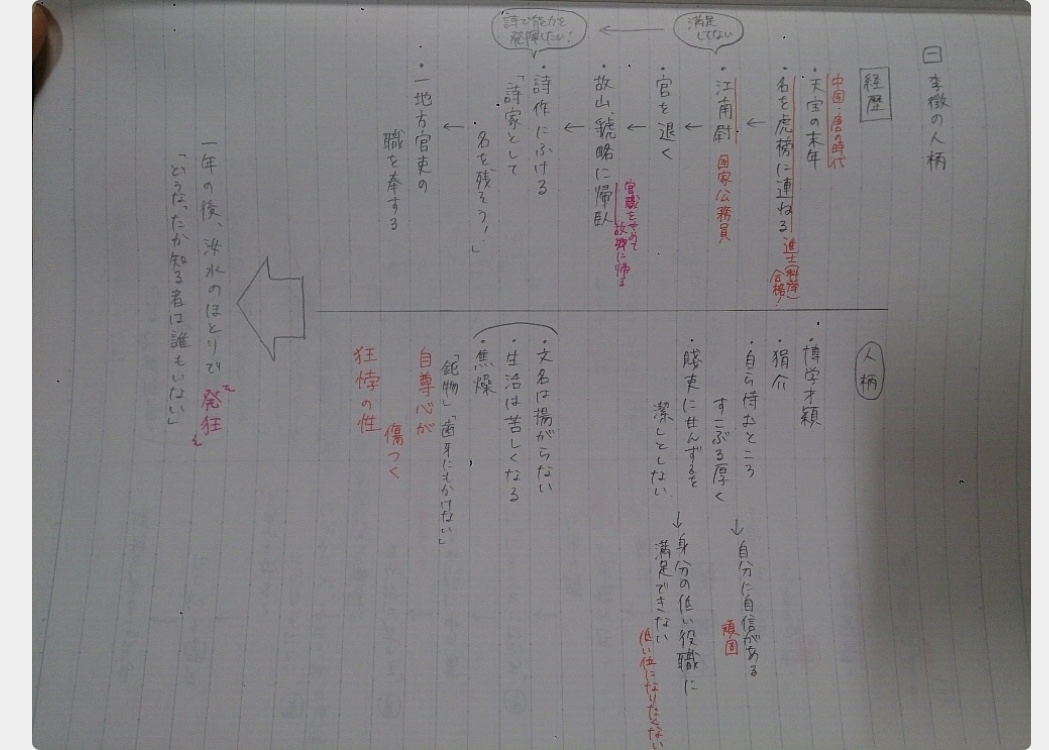 一 李徴の人柄
経歴
中国・唐の時代
・天宝の末年
・名を虎榜に連ねる
進士(科挙)
合格!
満足
してない
・江南尉
国家公務員
・官を退く
・故山、虢略に帰臥
官職をやめて
故郷に帰る
詩で能力を
発揮したい!
・詩作にふける
「詩家として
名を残そう!」
・一地方官吏の
職を奉ずる
人柄
・博学才穎
・狷介
・自ら恃むところ
すこぶる厚く
→自分に自信がある
頑固
・賤吏に甘んずるを
潔しとしない
→身分の低い役職に
満足できない
低い位になりたくない
・文名は揚がらない
・生活は苦しくなる
・焦燥
「鈍物」「歯牙にもかけない」
自尊心が
傷つく
狂悖の性
一年の後、汝水のほとりで発狂
「どうなったか知る者は誰もいない」